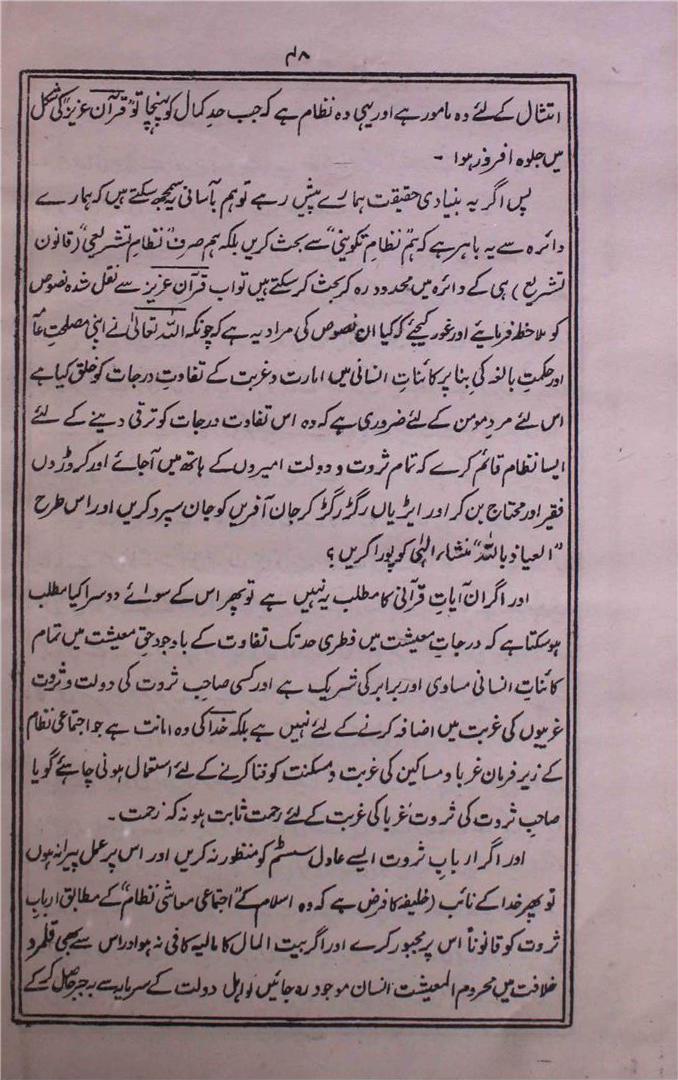 ۴۸
امتثال کے لئے وہ مامور ہے اور یہی وہ نظام ہے کہ جب حدِ کمال کو پہنچا تو "قرآن عزیز" کی شکل
میں جلوہ افروز ہوا۔
پس اگر یہ بنیادی حقیقت ہمارے پیشِ رہے تو ہم بآسانی یہ سمجھ سکتے ہیں کہ ہمارے
دائرہ سے یہ باہر ہے کہ ہم "نظامِ تکوینی" سے بحث کریں بلکہ ہم صرف "نظامِ تشریعی" (قانون
تشریع) ہی کے دائرہ میں محدود رہ کر بحث کر سکتے ہیں تو اب قرآن عزیز سے نقل شدہ نصوص
کو ملاحظہ فرمایئے اور غور کیجئے کہ کیا ان نصوص کی مراد یہ ہے کہ چونکہ اللہ تعالیٰ نے اپنی مصلحتِ عام
اور حکمتِ بالغہ کی بنا پر کائناتِ انسانی میں امارت و غربت کے تفاوتِ درجات کو خلق کیا ہے
اس لئے مردِ مومن کے لئے ضروری ہے کہ وہ اس تفاوت درجات کو ترقی دینے کے لئے
ایسا نظام قائم کرے کہ تمام ثروت و دولت امیروں کے ہاتھ میں آجائے اور کروڑوں
فقیر اور محتاج بن کر اور ایڑیاں رگڑ رگڑ کر جان آفریں کو جان سپرد کریں اور اس طرح
"العیاذ باللہ" منشاء الٰہی کو پورا کریں؟
اور اگر ان آیاتِ قرآنی کا مطلب یہ نہیں ہے تو پھر اس کے سوائے دوسرا کیا مطلب
ہو سکتا ہے کہ درجاتِ معیشت میں فطری حد تک تفاوت کے باوجود حقِ معیشت میں تمام
کائناتِ انسانی مساوی اور برابر کی شریک ہے اور کسی صاحبِ ثروت کی دولت و ثروت
غریبوں کی غربت میں اضافہ کرنے کے لئے نہیں ہے بلکہ خدا کی وہ امانت ہے جو اجتماعی نظام
کے زیرِ فرمان غربا و مساکین کی غربت و مسکنت کو فنا کرنے کے لئے استعمال ہونی چاہئے گویا
صاحبِ ثروت کی ثروت، غربا کی غربت کے لئے رحمت ثابت ہو نہ کہ زحمت۔
اور اگر اربابِ ثروت ایسے عادل سسٹم کو منظور نہ کریں اور اس پر عمل پیرا نہ ہوں
تو پھر خدا کے نائب (خلیفہ کا فرض ہے کہ وہ اسلام کے "اجتماعی معاشی نظام" کے مطابق اربابِ
ثروت کو قانوناً اس پر مجبور کرے اور اگر بیت المال کا مالیہ کافی نہ ہو اور اس سے بھی قلمرو
خلافت میں محروم المعیشت انسان موجود رہ جائیں تو اہل دولت کے سرمایہ سے بہ جبر حاصل کرکے